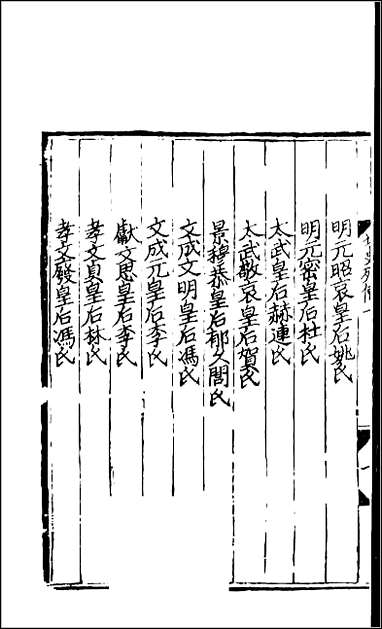 明元昭哀皇后姚氏
明元密皇后杜氏
太武皇后赫連氏
太武敬哀皇后賀氏
景穆恭皇后郁久閭氏
文成文明皇后馮氏
文成元皇后李氏
獻文思皇后李氏
孝文貞皇后林氏
孝文廢皇后馮氏